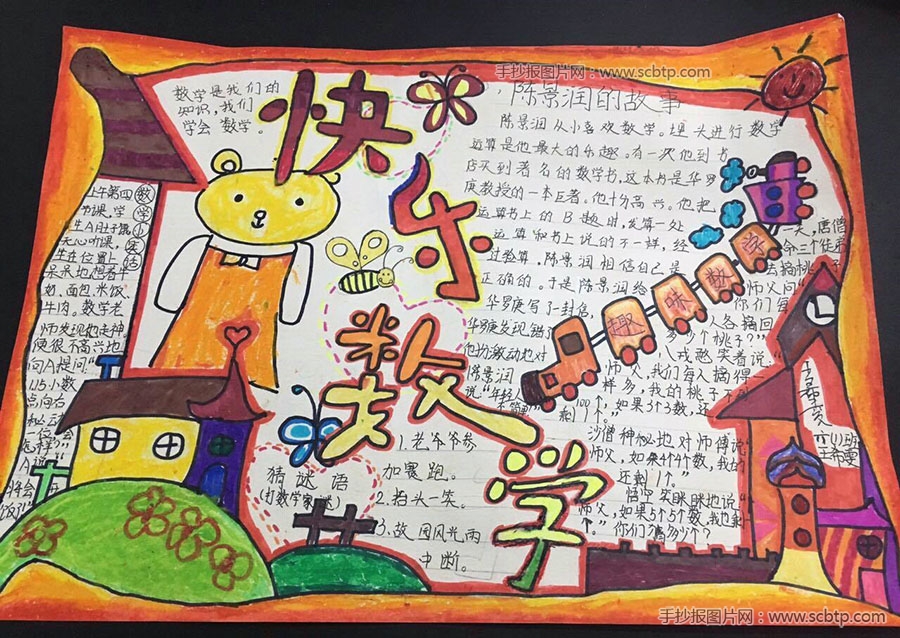 手抄报图片网：www.scbtp.com
快
乐
数
学
数学是我们的
知识，我们
学会 数学。
陈景润的故事
陈景润从小喜欢数学。埋头进行数学
运算是他最大的乐趣。有一次他到书
店买到著名的数学书，这本书是华罗
庚教授的一本巨著。他十分高兴。他把
运算书上的B题时，发算一处
运算和书上说的不一样，经
过验算，陈景润相信自己是
正确的。于是陈景润给
华罗庚写了一封信，
华罗庚发现错了
他协激动地对
陈景润
说：“年轻人
不简单”
数学小笑话
上午第四
书课，学
生A肚子饿
无心听课，
坐在位置上
呆呆地想着牛
奶、面包米饭、
牛肉。数学老
师发现她走神
便很不高兴地
向A提问“
以后小数
点向右
A说
将会
饭
趣味数学
一天，唐僧
命三个徒弟
去摘桃子
师父问
你们每
人各摘回
多少个桃子？”
八戒憨笑着说：“
师父，我们每人摘得
一样多，我的桃子不
100个，如果3个3数，还
剩1个。”
沙僧神秘地对师傅说“
师父，如果4个4个数，我的
还剩1个。”
悟空笑眯眯地说“
师父，如果5个5数，我也剩
个。”你们摘多少个？
猜谜语
（打数学家谜）
1.老爷爷参
加赛跑。
2.抬头一笑。
3.故园风光雨
中断。
手抄报图片网：www.scbtp.com